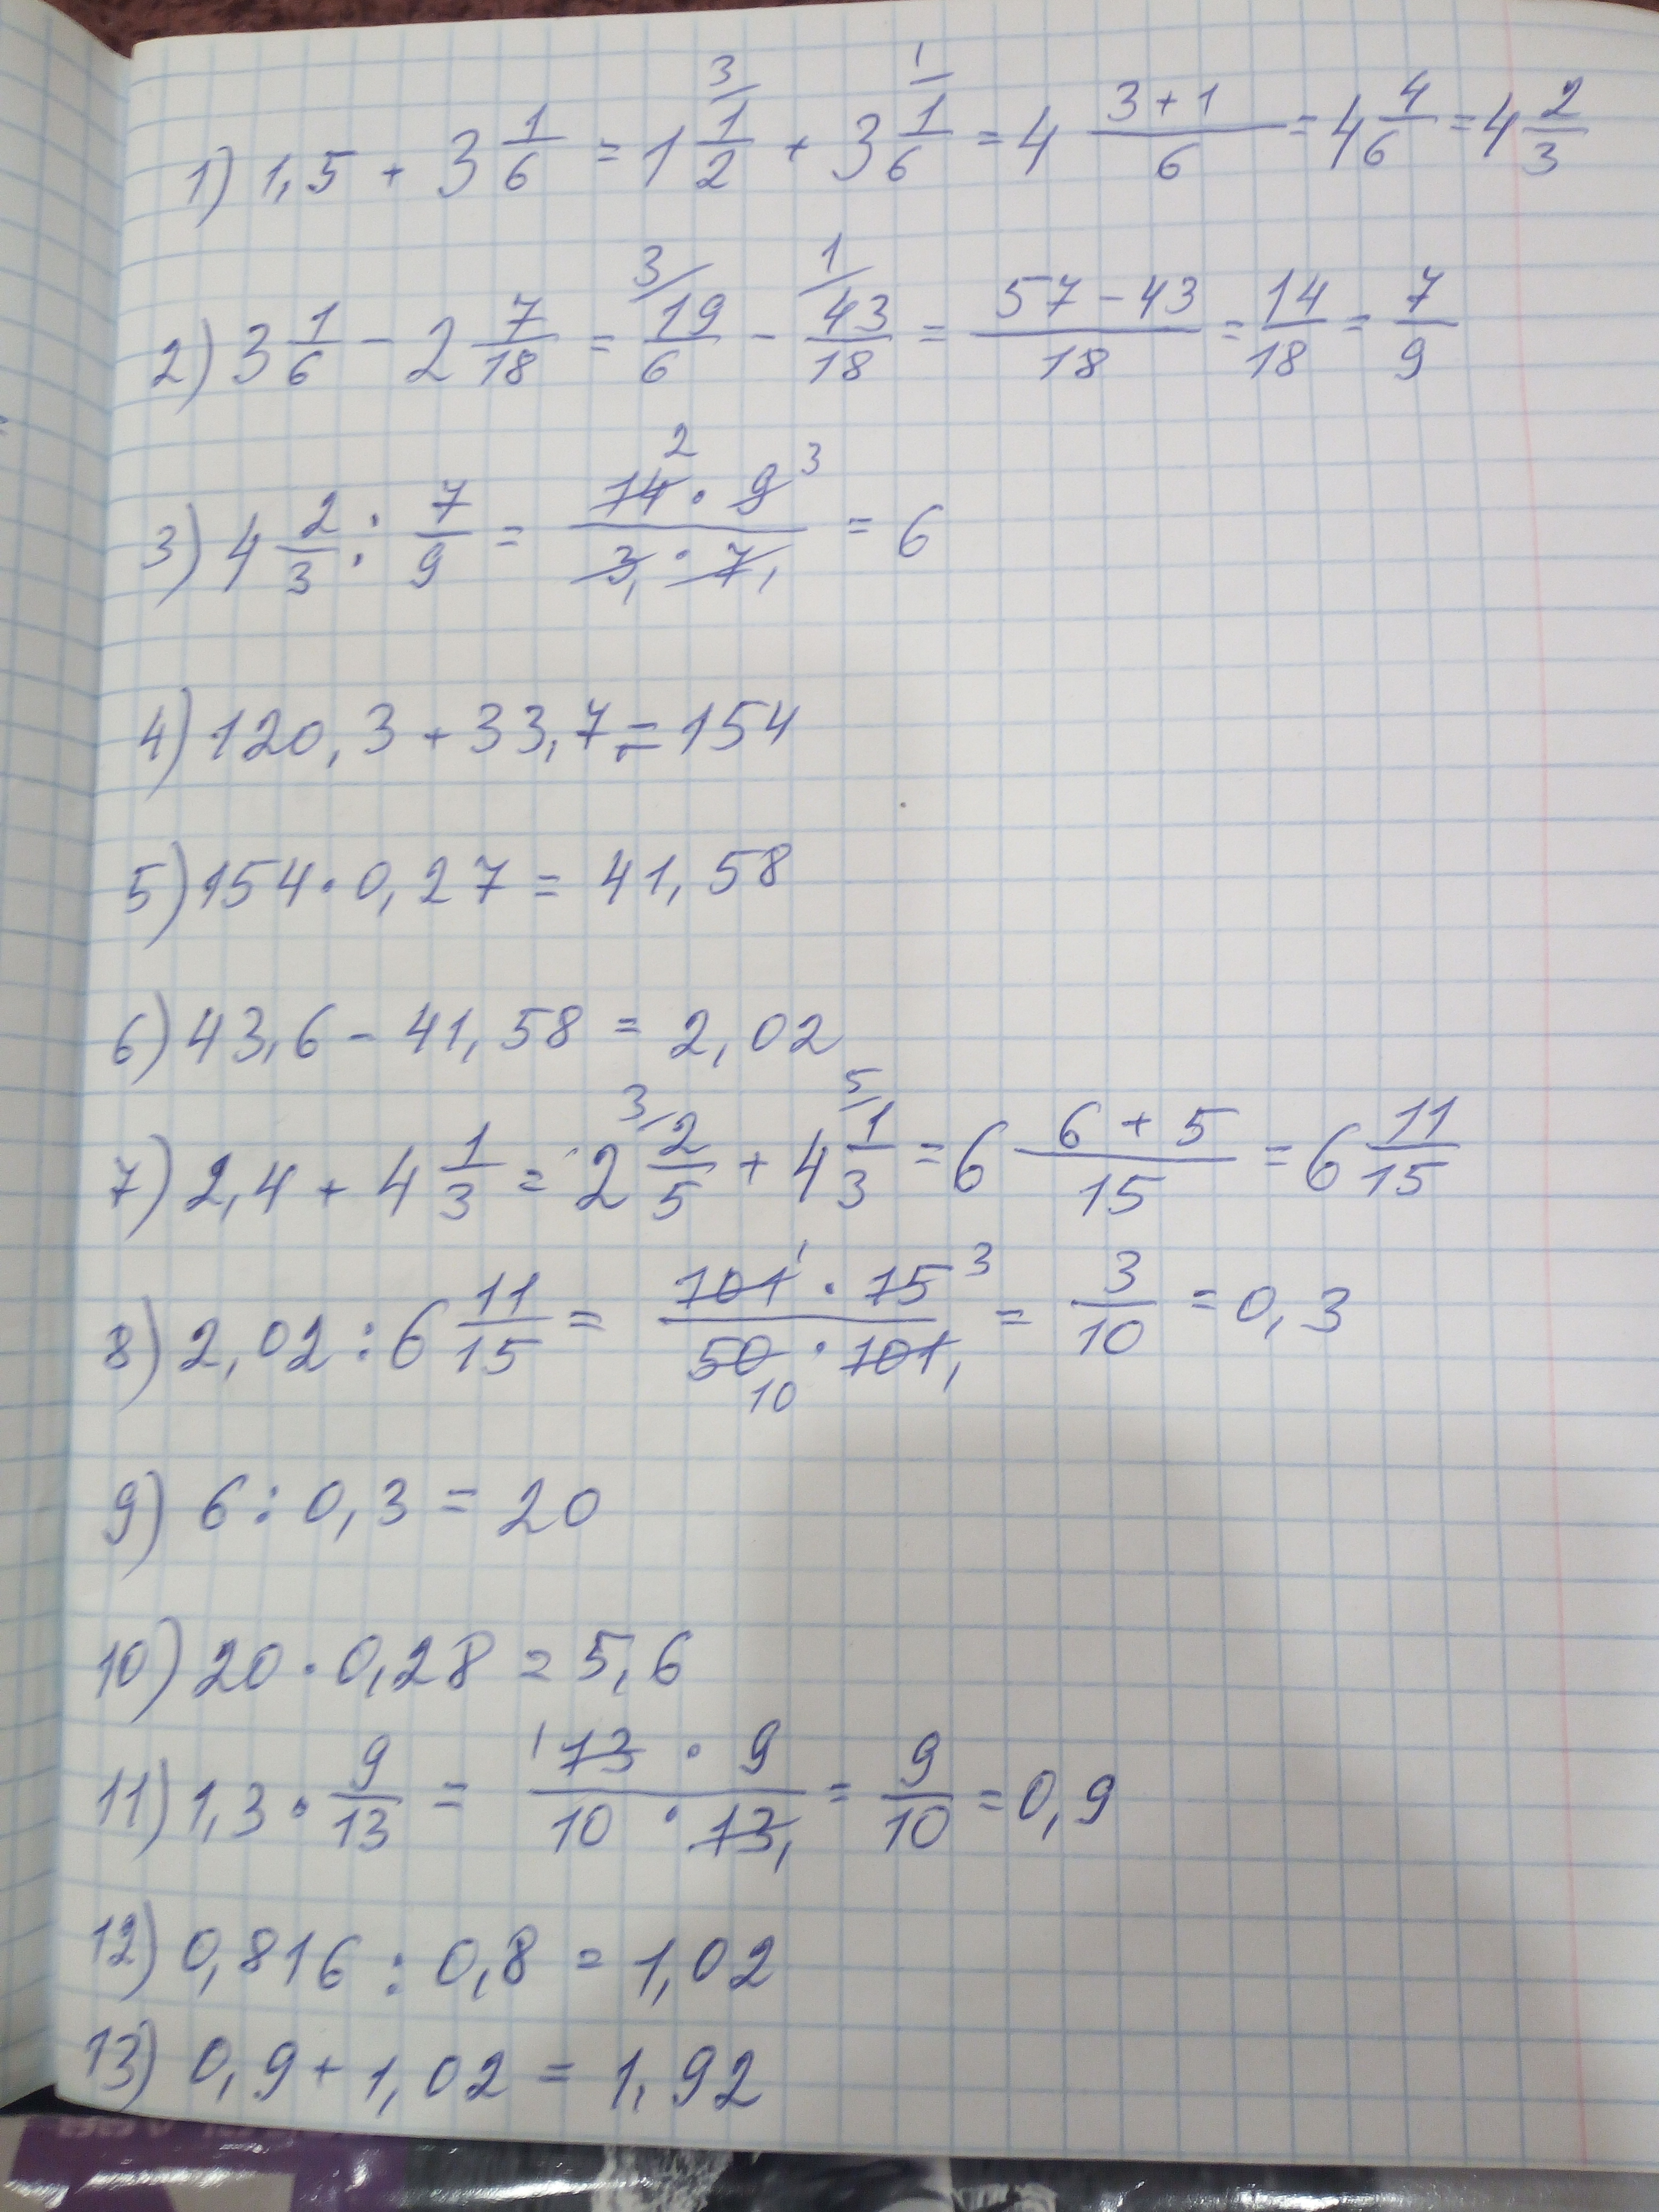 1) 1,5 + 3 1/6 = 1 1/2 3/ + 3 1/6 1/ = 4 (3+1)/6 = 4 4/6 = 4 2/3
2) 3 1/6 - 2 7/18 = 19/6 3/ - 43/18 1/ = (57-43)/18 = 14/18 = 7/9
3) 4 2/3 : 7/9 = (14 2 · 9 3)/(3 1 · 7 1) = 6
4) 120,3 + 33,7 = 154
5) 154 · 0,27 = 41,58
6) 43,6 - 41,58 = 2,02
7) 2,4 + 4 1/3 = 2 2/5 3/ + 4 1/3 5/ = 6 (6+5)/15 = 6 11/15
8) 2,02 : 6 11/15 = (101 1 · 15 3)/(50 10 · 101 1) = 3/10 = 0,3
9) 6 : 0,3 = 20
10) 20 · 0,28 = 5,6
11) 1,3 · 9/13 = (1 13 · 9)/(10 · 13 1) = 9/10 = 0,9
12) 0,816 : 0,8 = 1,02
13) 0,9 + 1,02 = 1,92